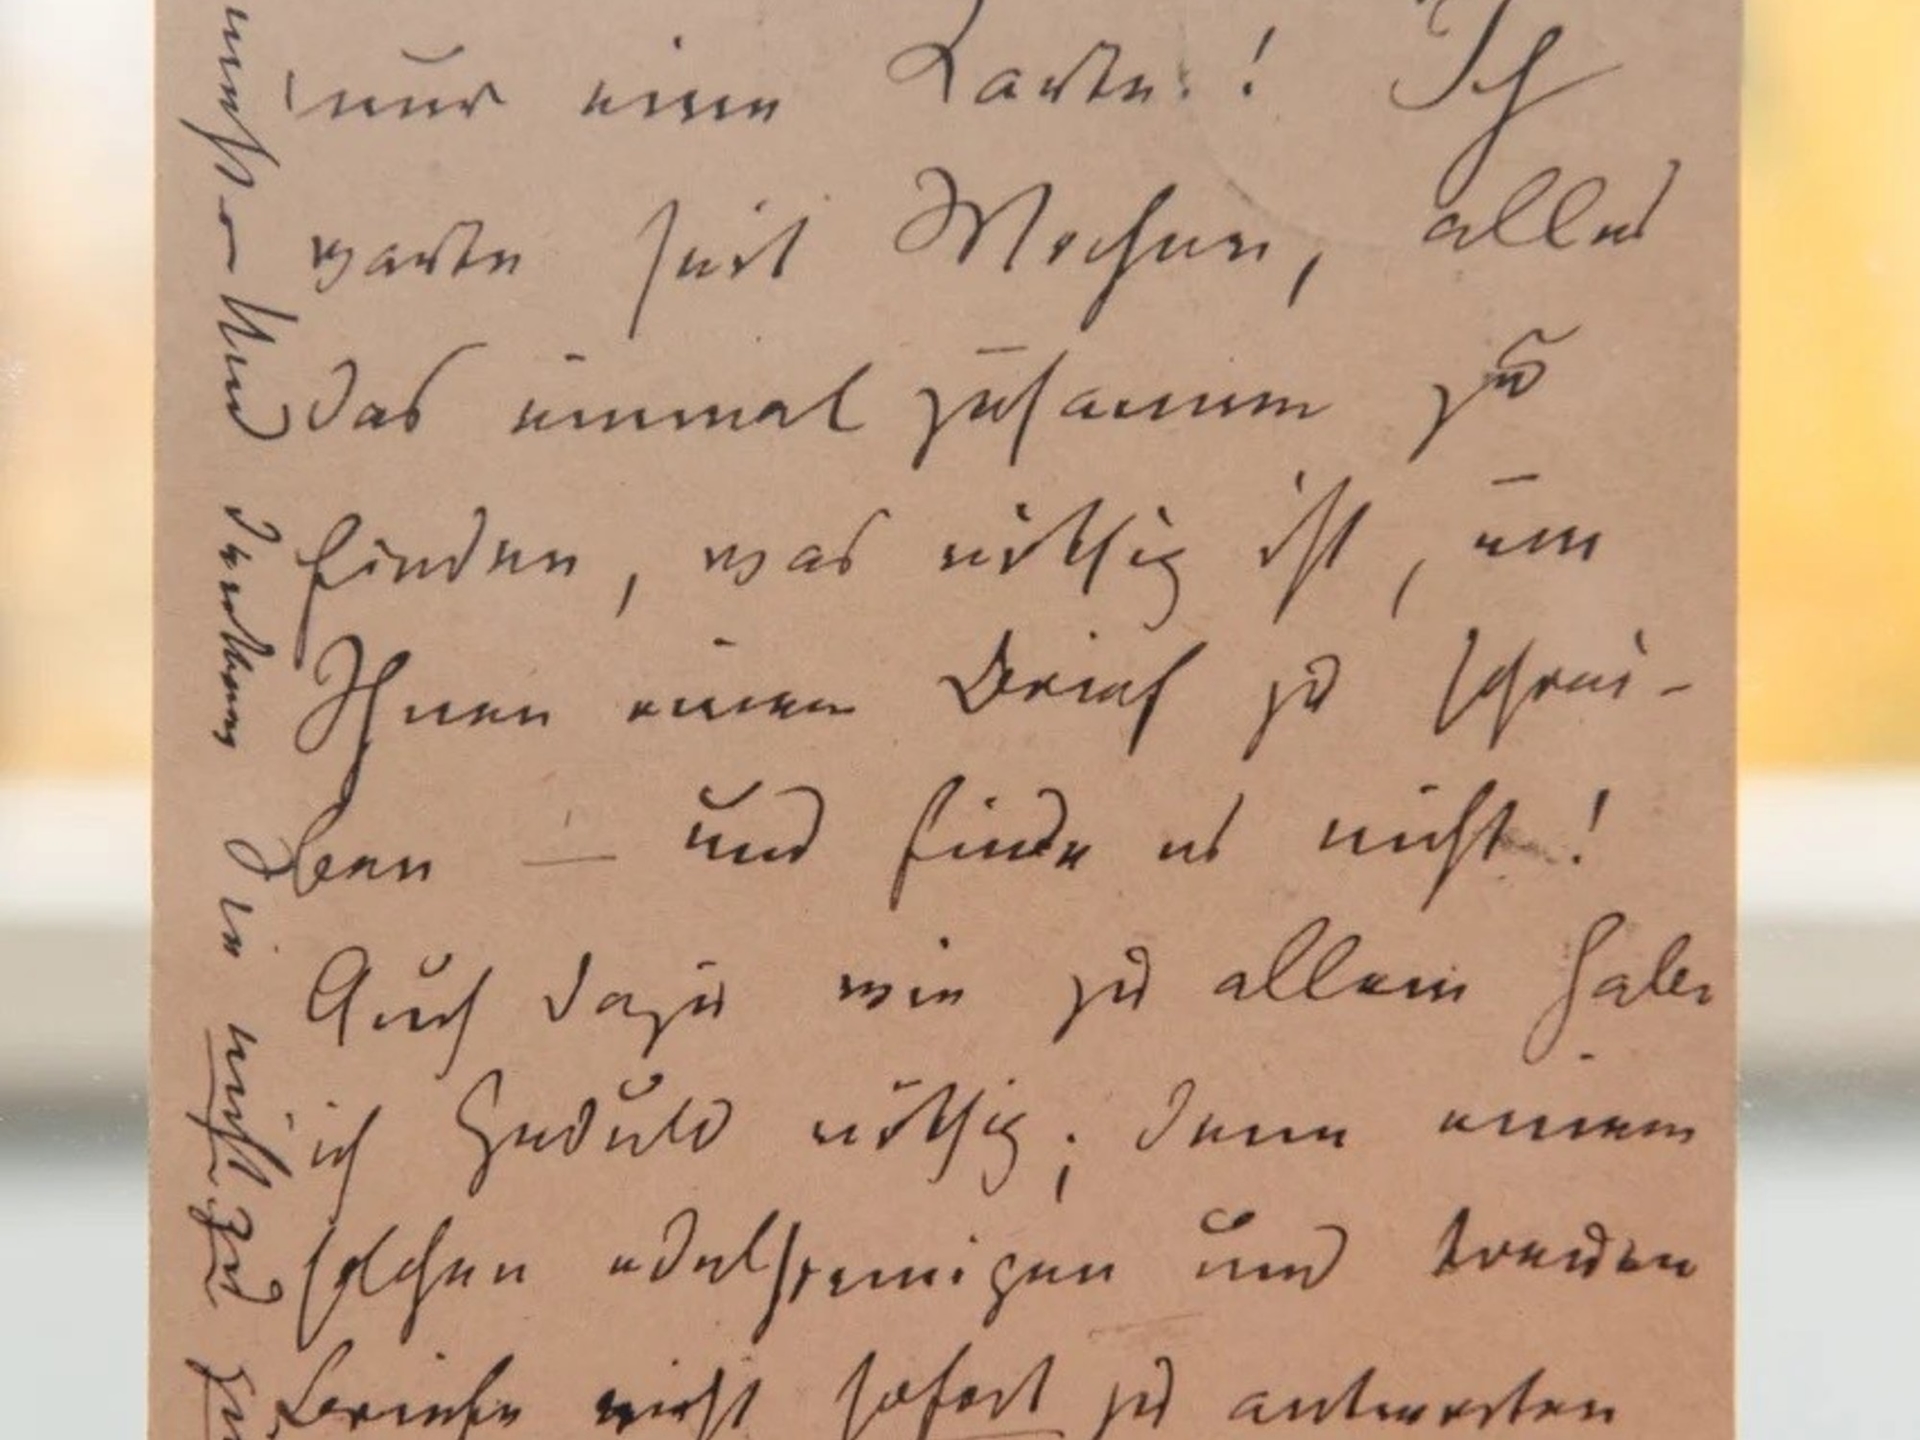 nur eine Karte! Ich
warte seit Wochen, alles
das einmal zusammen zu
finden, was nöthig ist, um
Ihnen einen Brief zu schrei-
ben — und finde es nicht!
Auch dazu wie zu allem habe
ich Geduld nöthig; denn einem
solchen edelsinnigen und treuen
Briefe nicht sofort zu antworten
Und
Sie nicht zu